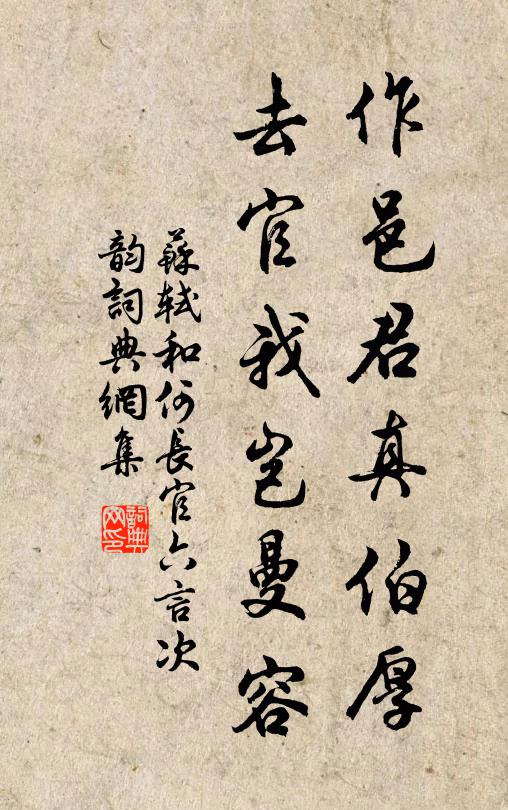 作邑君真伯厚
去官我岂曼容
蘇軾和何長官六言次
韵詞典網集
詞典
网印